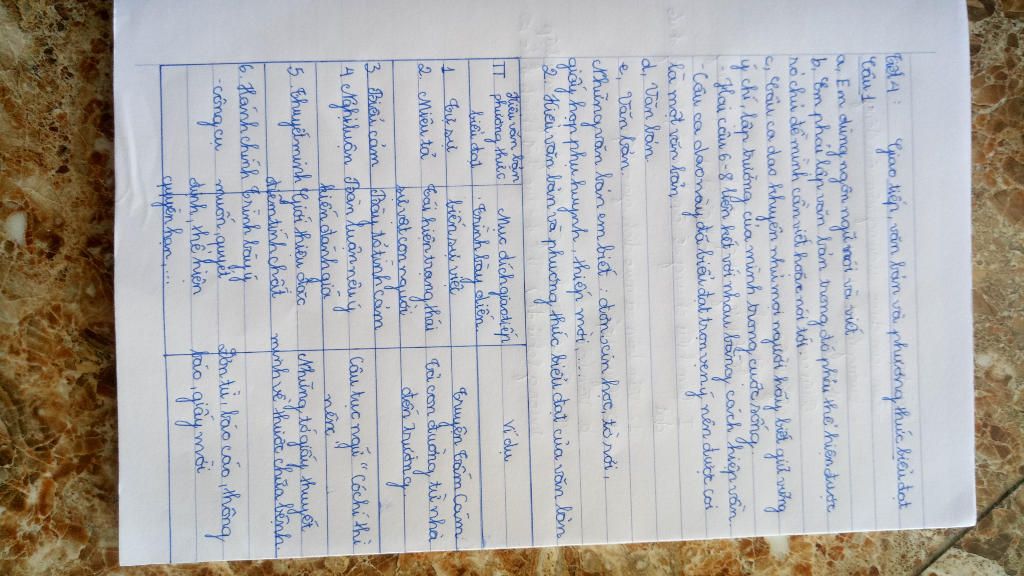 Tiết 4: Giao tiếp, văn bản và phương thức biểu đạt
Câu 1:
a, Em dùng ngôn ngữ nói và viết
b, Em phải lập văn bản trong đó phải thể hiện được
rõ chủ đề mình cần viết hoặc nói tới.
c, Câu ca dao khuyên nhủ mọi người hãy biết giữ vững
ý chí lập trường của mình trong cuộc sống.
- Hai câu 6-8 liên kết với nhau bằng cách hiệp vần
- Câu ca dao này đã biểu đạt trọn vẹn ý nên được coi
là một văn bản,
d, Văn bản
e, Văn bản
Những văn bản em biết: đơn xin học, tờ rơi,
giấy họp phụ huynh, thiệp mời....
2 Kiểu văn bản và phương thức biểu đạt của văn bản
TT Kiểu văn bản phương thức biểu đạt Mục đích giao tiếp Ví dụ
1 Tự sự Trình bày diễn biến sự việc Truyện Tấm Cám
2 Miêu tả Tái hiện trạng thái sự vật con người Tả con đường từ nhà đến trường
3 Biểu cảm Bày tỏ tình cảm
4 Nghị luận Bàn luận nêu ý kiến đánh giá Câu tục ngữ "Có chí thì nên"
5 Thuyết minh Giới thiệu đặc điểm tính chất Những tờ giấy thuyết minh về thuốc chữa bệnh
6. Hành chính công cụ Trình bày ý muốn quyết định, thể hiện quyền hạn,... Đơn từ, báo cáo, thông báo, giấy mời